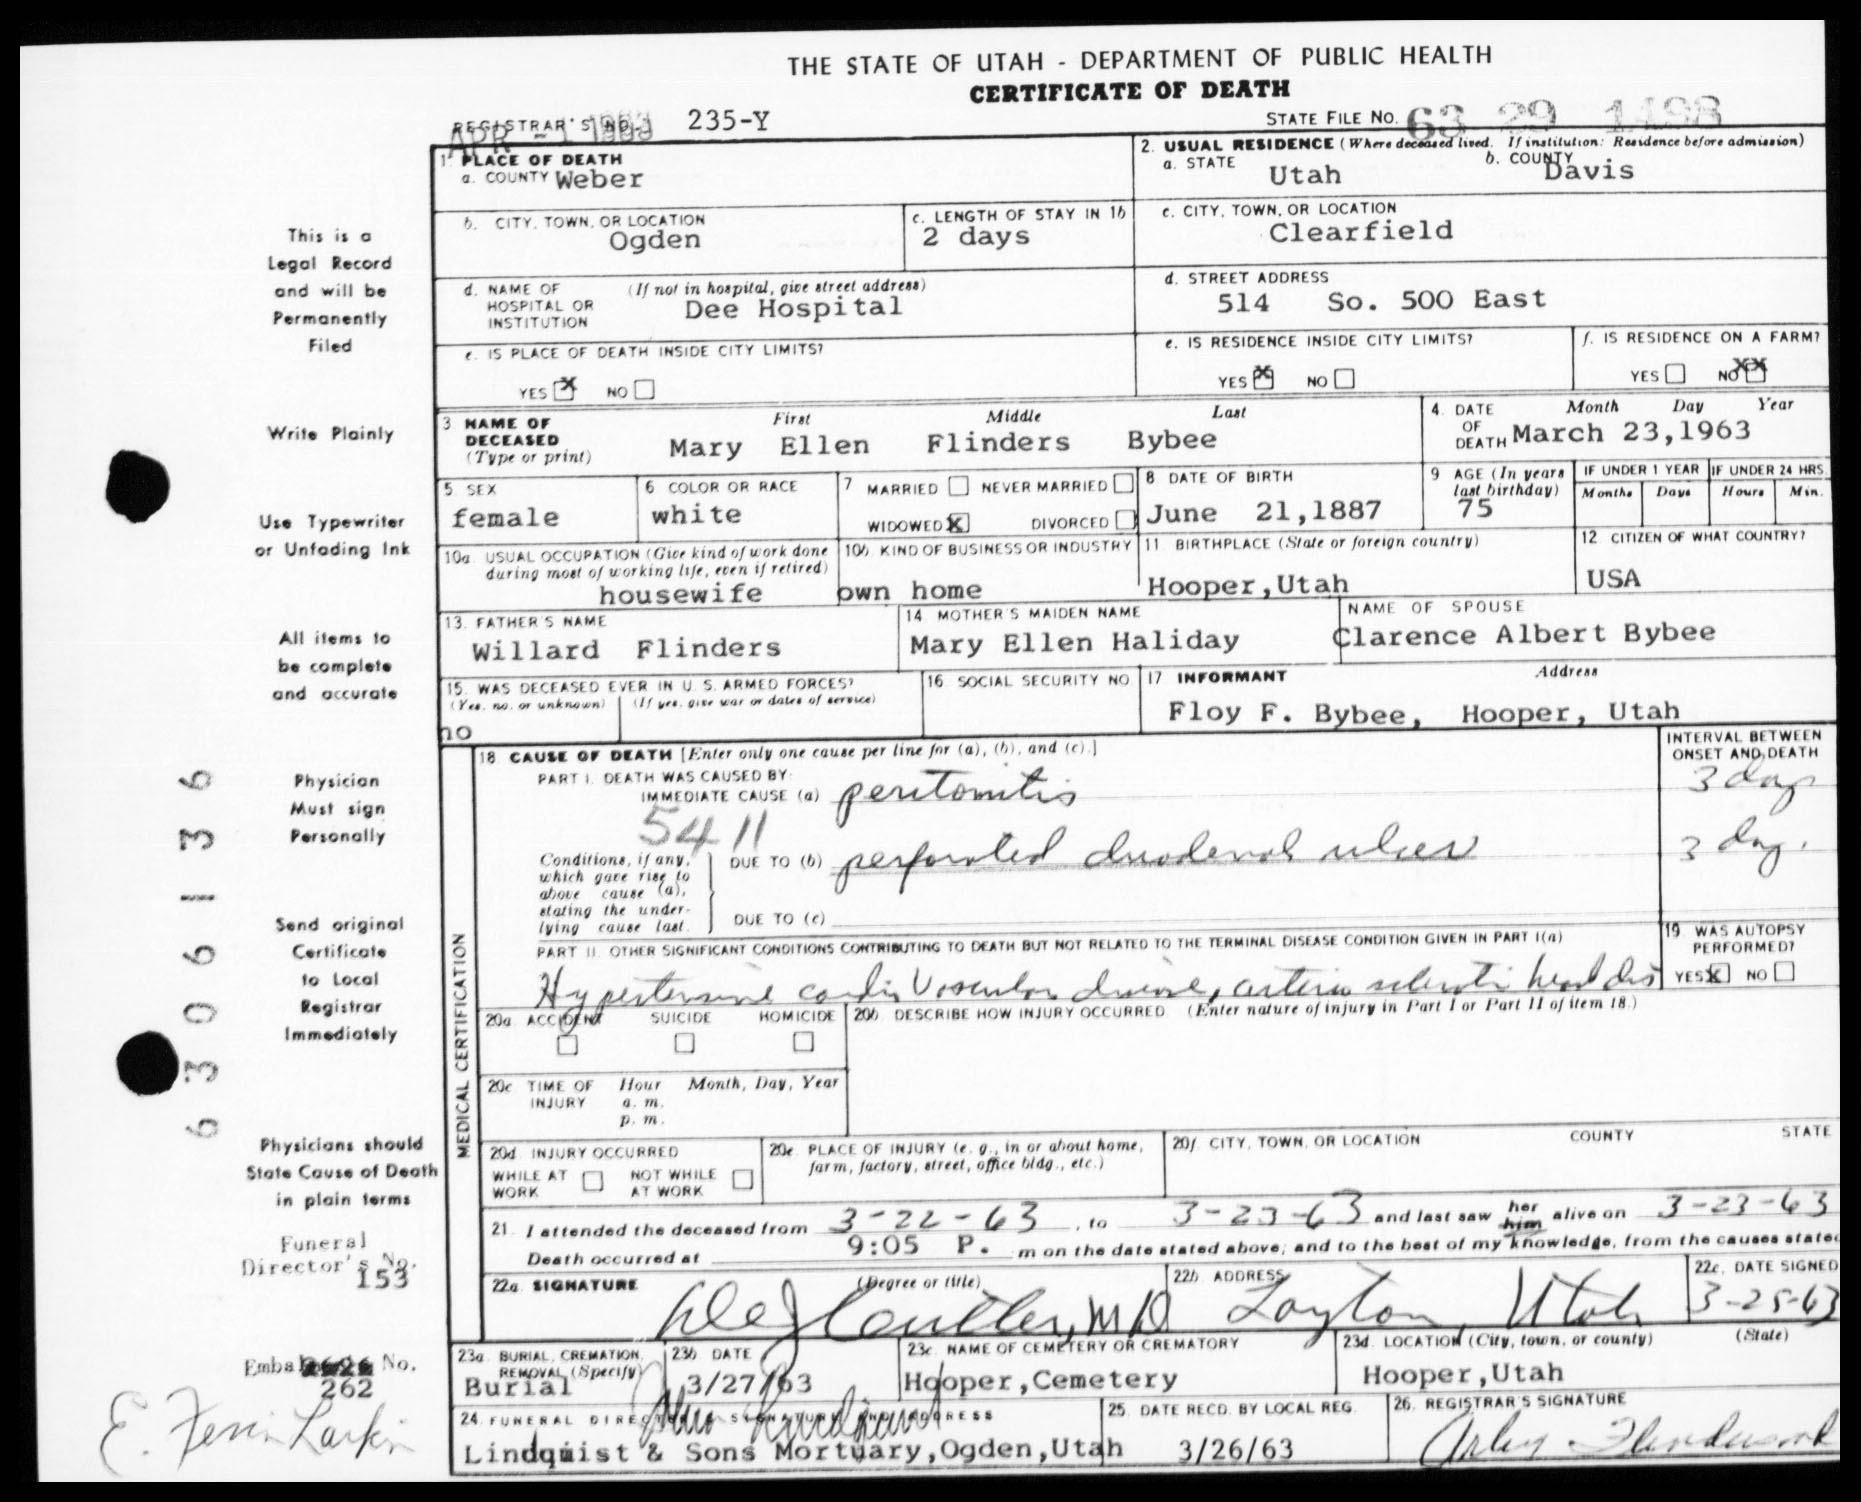 THE STATE OF UTAH - DEPARTMENT OF PUBLIC HEALTH
CERTIFICATE OF DEATH
REGISTRAR'S NO. 235-Y
APR -1 1963
STATE FILE NO. 63 29 1498
1. PLACE OF DEATH
a. COUNTY Weber
2. USUAL RESIDENCE (Where deceased lived. If institution: Residence before admission)
a. STATE Utah b. COUNTY Davis
b. CITY, TOWN, OR LOCATION Ogden
c. LENGTH OF STAY IN 1b 2 days
c. CITY, TOWN, OR LOCATION Clearfield
d. NAME OF HOSPITAL OR INSTITUTION (If not in hospital, give street address) Dee Hospital
d. STREET ADDRESS 514 So. 500 East
e. IS PLACE OF DEATH INSIDE CITY LIMITS?
YES X NO
e. IS RESIDENCE INSIDE CITY LIMITS?
YES X NO
f. IS RESIDENCE ON A FARM?
YES NO XX
3 NAME OF DECEASED (Type or print) First Middle Last
Mary Ellen Flinders Bybee
4. DATE OF DEATH Month Day Year
March 23,1963
5 SEX female
6 COLOR OR RACE white
7 MARRIED NEVER MARRIED
WIDOWED X DIVORCED
8 DATE OF BIRTH June 21,1887
9 AGE (In years last birthday) 75
IF UNDER 1 YEAR Months Days
IF UNDER 24 HRS. Hours Min.
10a. USUAL OCCUPATION (Give kind of work done during most of working life, even if retired) housewife
10b. KIND OF BUSINESS OR INDUSTRY own home
11. BIRTHPLACE (State or foreign country) Hooper,Utah
12. CITIZEN OF WHAT COUNTRY? USA
13. FATHER'S NAME Willard Flinders
14 MOTHER'S MAIDEN NAME Mary Ellen Haliday
NAME OF SPOUSE Clarence Albert Bybee
15. WAS DECEASED EVER IN U. S. ARMED FORCES?
(Yes, no, or unknown) (If yes, give war or dates of service)
no
16. SOCIAL SECURITY NO
17 INFORMANT Address
Floy F. Bybee, Hooper, Utah
MEDICAL CERTIFICATION
18. CAUSE OF DEATH [Enter only one cause per line for (a), (b), and (c).]
INTERVAL BETWEEN ONSET AND DEATH
PART I. DEATH WAS CAUSED BY:
IMMEDIATE CAUSE (a) peritonitis 3 days
5411
Conditions, if any, which gave rise to above cause (a), stating the underlying cause last.
DUE TO (b) perforated duodenal ulcer 3 day.
DUE TO (c)
PART II. OTHER SIGNIFICANT CONDITIONS CONTRIBUTING TO DEATH BUT NOT RELATED TO THE TERMINAL DISEASE CONDITION GIVEN IN PART I(a)
Hypertensive cardio Vascular disease, arterio sclerotic heart dis
19. WAS AUTOPSY PERFORMED?
YES X NO
20a. ACCIDENT SUICIDE HOMICIDE
20b. DESCRIBE HOW INJURY OCCURRED (Enter nature of injury in Part I or Part II of item 18.)
20c TIME OF INJURY Hour Month, Day, Year
a. m.
p. m.
20d. INJURY OCCURRED
WHILE AT WORK NOT WHILE AT WORK
20e. PLACE OF INJURY (e. g., in or about home, farm, factory, street, office bldg., etc.)
20f. CITY, TOWN, OR LOCATION COUNTY STATE
21. I attended the deceased from 3-22-63, to 3-23-63 and last saw her him alive on 3-23-63
Death occurred at 9:05 P. m on the date stated above; and to the best of my knowledge, from the causes stated
22a. SIGNATURE (Degree or title) M D
22b ADDRESS Layton, Utah
22c. DATE SIGNED 3-25-63
23a. BURIAL, CREMATION, REMOVAL (Specify) Burial
23b DATE 3/27/63
23c. NAME OF CEMETERY OR CREMATORY Hooper,Cemetery
23d. LOCATION (City, town, or county) (State)
Hooper,Utah
24. FUNERAL DIRECTOR'S SIGNATURE AND ADDRESS
Lindquist & Sons Mortuary,Ogden,Utah
25. DATE RECD. BY LOCAL REG. 3/26/63
26. REGISTRAR'S SIGNATURE
This is a
Legal Record
and will be
Permanently
Filed
Write Plainly
Use Typewriter
or Unfading Ink
All items to
be complete
and accurate
Physician
Must sign
Personally
Send original
Certificate
to Local
Registrar
Immediately
Physicians should
State Cause of Death
in plain terms
Funeral
Director's No.
153
No.
262
E. Larkin
6306136